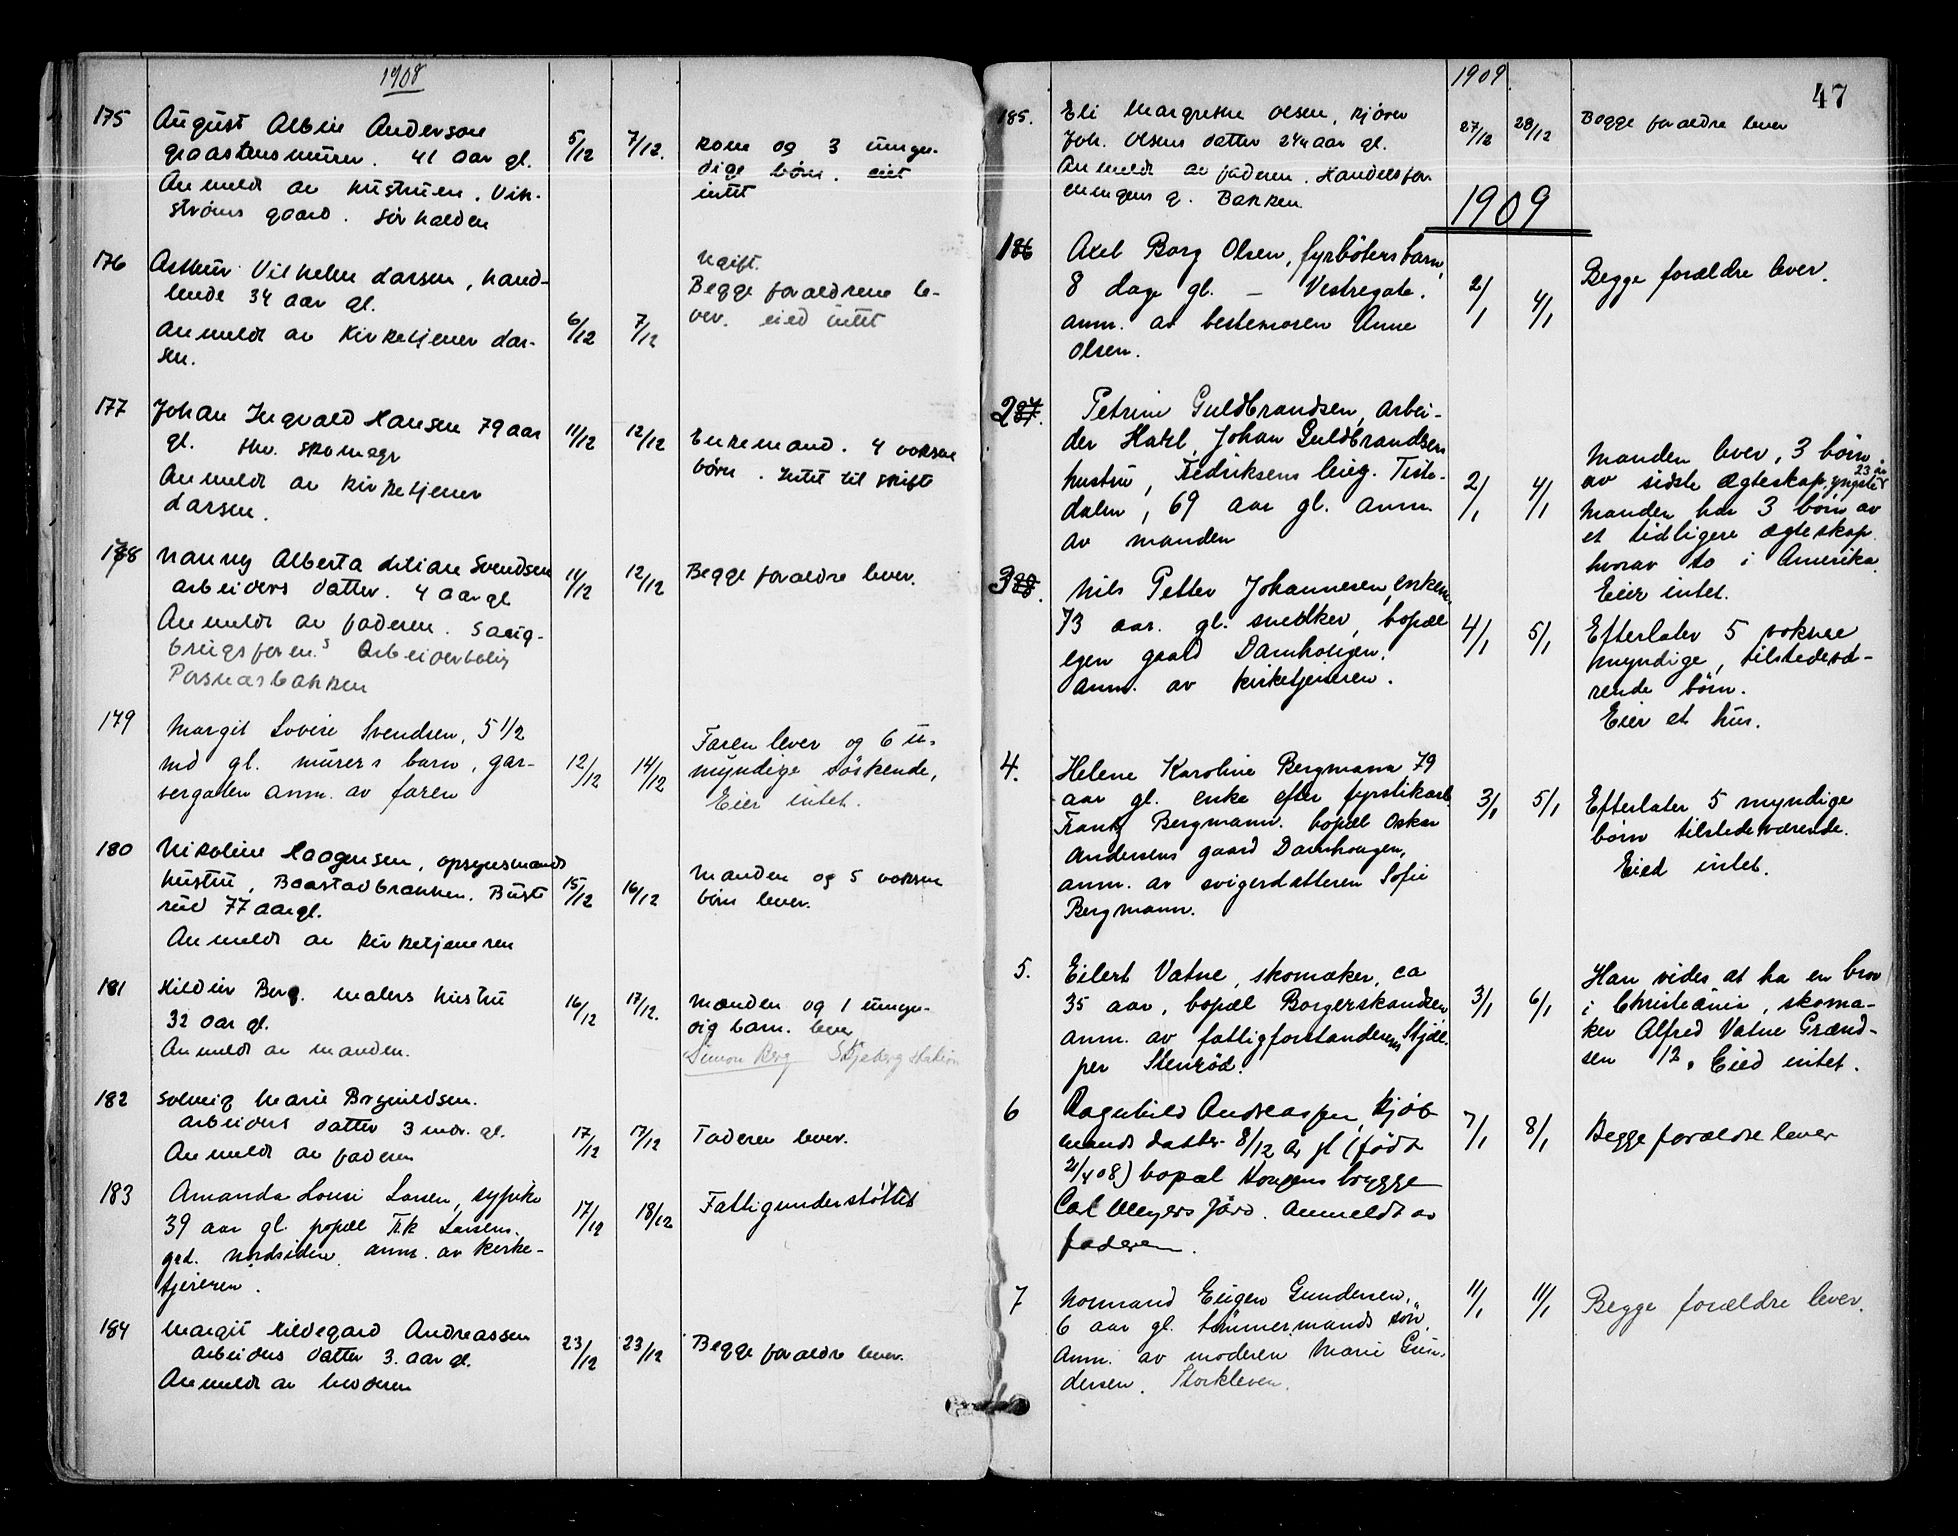 1908
175 August Albin Anderson
graastensmurer. 41 aar gl.
Anmeldt av hustruen. Vik-
strøms gaard. Sørhalden
5/12 7/12.
Kone og 3 umyn-
dige børn. eiet
intet
176 Arthur Vilhelm Larsen, hand-
lende 34 aar gl.
Anmeldt av Kirketjener Lar-
sen.
6/12 7/12
Ugift.
Begge foraeldrene le-
ver. eied intet
177 Johan Ingvald Hansen 79 aar
gl. fhv. skomagr
Anmeldt av Kirketjener
Larsen.
11/12 12/12
Enkemand. 4 voksne
børn. Intet til skifte
178 Nanny Alberta Lilian Svendsen
arbeiders datter. 4 aar gl
Anmeldt av faderen. Saug-
brugsforen.s Arbeiderbolig
Porsnæsbakken
11/12 12/12
Begge foraeldre lever.
179 Margit Lovise Svendsen, 5 1/2
md gl. murers barn, gar-
vergaten anm. av faren
12/12 14/12
Faren lever og 6 u-
myndige söskende,
Eier intet.
180 Nikoline Haagensen, opsynsmands
hustru, Baastadbrakken. Buste
rud 77 aar gl.
Anmeldt av Kirketjeneren
15/12 16/12
Manden og 5 voksne
børn lever.
181 Hildur Berg. malers hustru
32 aar gl.
Anmeldt av manden.
16/12 17/12.
Manden og 1 umyn-
dig barn. lever
Simon Berg Skjeberg station
182 Solveig Marie Brynildsen.
arbeiders datter 3 mdr. gl.
Anmeldt av faderen
17/12 17/12
Faderen lever.
183 Amanda Lousi Larsen, sypike
39 aar gl. popæl Frk Larsens
grd. Nordsiden. anm. av kirke-
tjeneren.
17/12 18/12
Fattigunderstøttet
184 Margit Hildegard Andreassen
arbeiders datter 3. aar gl.
Anmeldt av moderen
23/12 23/12
Begge foraeldre lever.
1909
47
185. Eli Margrethe Olsen, kjører
Joh. Olsens datter 2 1/4 aar gl.
Anmeldt av faderen. Handelsfor
eningens g. Bakken
27/12 28/12
Begge foraeldre lever
1909
186 Axel Borg Olsen, fyrbøters barn,
8 dage gl. – Vestregate.
anm. av bestemoren Anne
Olsen.
2/1 4/1
Begge forældre lever.
287. Petrine Guldbrandsen, arbei-
der Hakl. Johan Guldbrandsens
hustru, Fredriksens leieg. Tiste-
dalen, 69 aar gl. anm.
av manden
2/1 4/1
Manden lever, 3 børn
av sidste ægteskap, yngste 23 år
Manden har 3 børn av
et tidligere ægteskap.
hvorav to i Amerika.
Eier intet.
388. Nils Petter Johannesen, enkem.
73 aar. gl. snedker, bopæl
egen gaard Damhaugen.
anm. av kirketjeneren.
4/1 5/1
Efterlater 5 voksne
myndige, tilstedevæ-
rende børn.
Eier et hus.
4. Helene Karoline Bergmann 79
aar gl. enke efter fyrstikarb.
Frantz Bergmann. bopæl Oskar
Andersens gaard Damhaugen,
anm. av svigerdatteren Sofie
Bergmann.
3/1 5/1
Efterlater 5 myndige
børn tilstedeværende.
Eied intet.
5. Eilert Vatne, skomaker, ca
35 aar, bopæl Borgerskandsen,
anm. av fattigforstanderens Hjæl-
per Stenrød.
3/1 6/1
Han vides at ha en bror
i Christiania, skoma-
ker Alfred Vatne Grænd-
sen 12. Eied intet.
6 Ragnhild Andreassen, kjøb
mands datter 8/12 år gl (født
21/4 08) bopæl Kongens brygge
Carl Meyers gård. Anmeldt av
faderen.
7/1 8/1
Begge forældre lever
7 Normand Eugen Gundersen,
6 aar gl. tømmermands søn.
Anm. av moderen Marie Gun-
dersen. Storkleven.
11/1 11/1
Begge forældre lever.